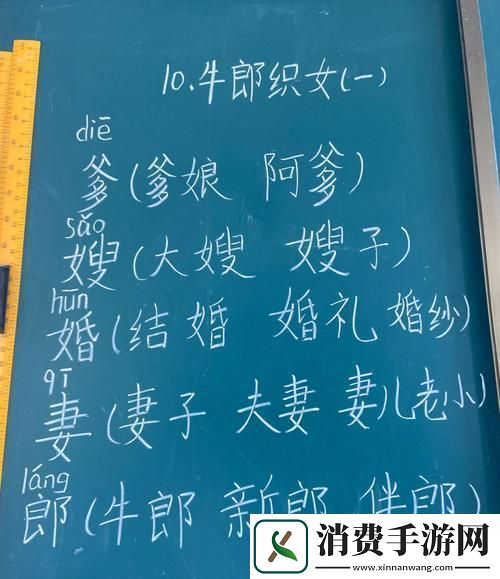 10.牛郎织女(一)
diē
爹(爹娘 阿爹)
sǎo
嫂(大嫂 嫂子)
hūn
婚(结婚 婚礼 婚纱)
qī
妻(妻子 夫妻 妻儿老小)
láng
郎(牛郎 新郎 伴郎)
消费手游网
www.xinnanwang.com